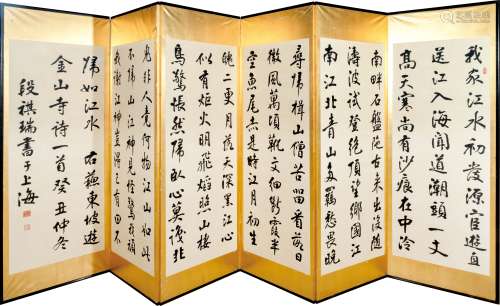 我家江水初發源宦遊直
送江入海聞道潮頭一丈
高天寒尚有沙痕在中泠
南畔石盤陀古來出沒隨
濤波試登絕頂望鄉國江
南江北青山多羈愁畏晚
尋歸楫山僧苦留看落日
微風萬頃靴文細斷霞半
空魚尾赤是時江月初生
魄二更月落天深黑江心
似有炬火明飛焰照山棲
鳥驚悵然歸臥心莫識非
鬼非人竟何物江山如此
不歸山江神見怪驚我頑
我謝江神豈得已有田不
歸如江水 右蘇東坡遊
金山寺詩一首癸丑仲冬
段祺瑞書于上海